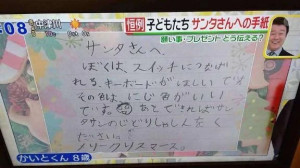 :08
恒例 子どもたち サンタさんへの手紙
願い事・プレゼント どう伝える?
サンタさんへ
ぼくは、スイッチにつなげ
れる、キーボードがほしいです
その色は、にじ色がいい
です。あとできればサン
タサンのじどりしゃしんを く
ださい。
メリークリスマース。
かいとくん 8歳